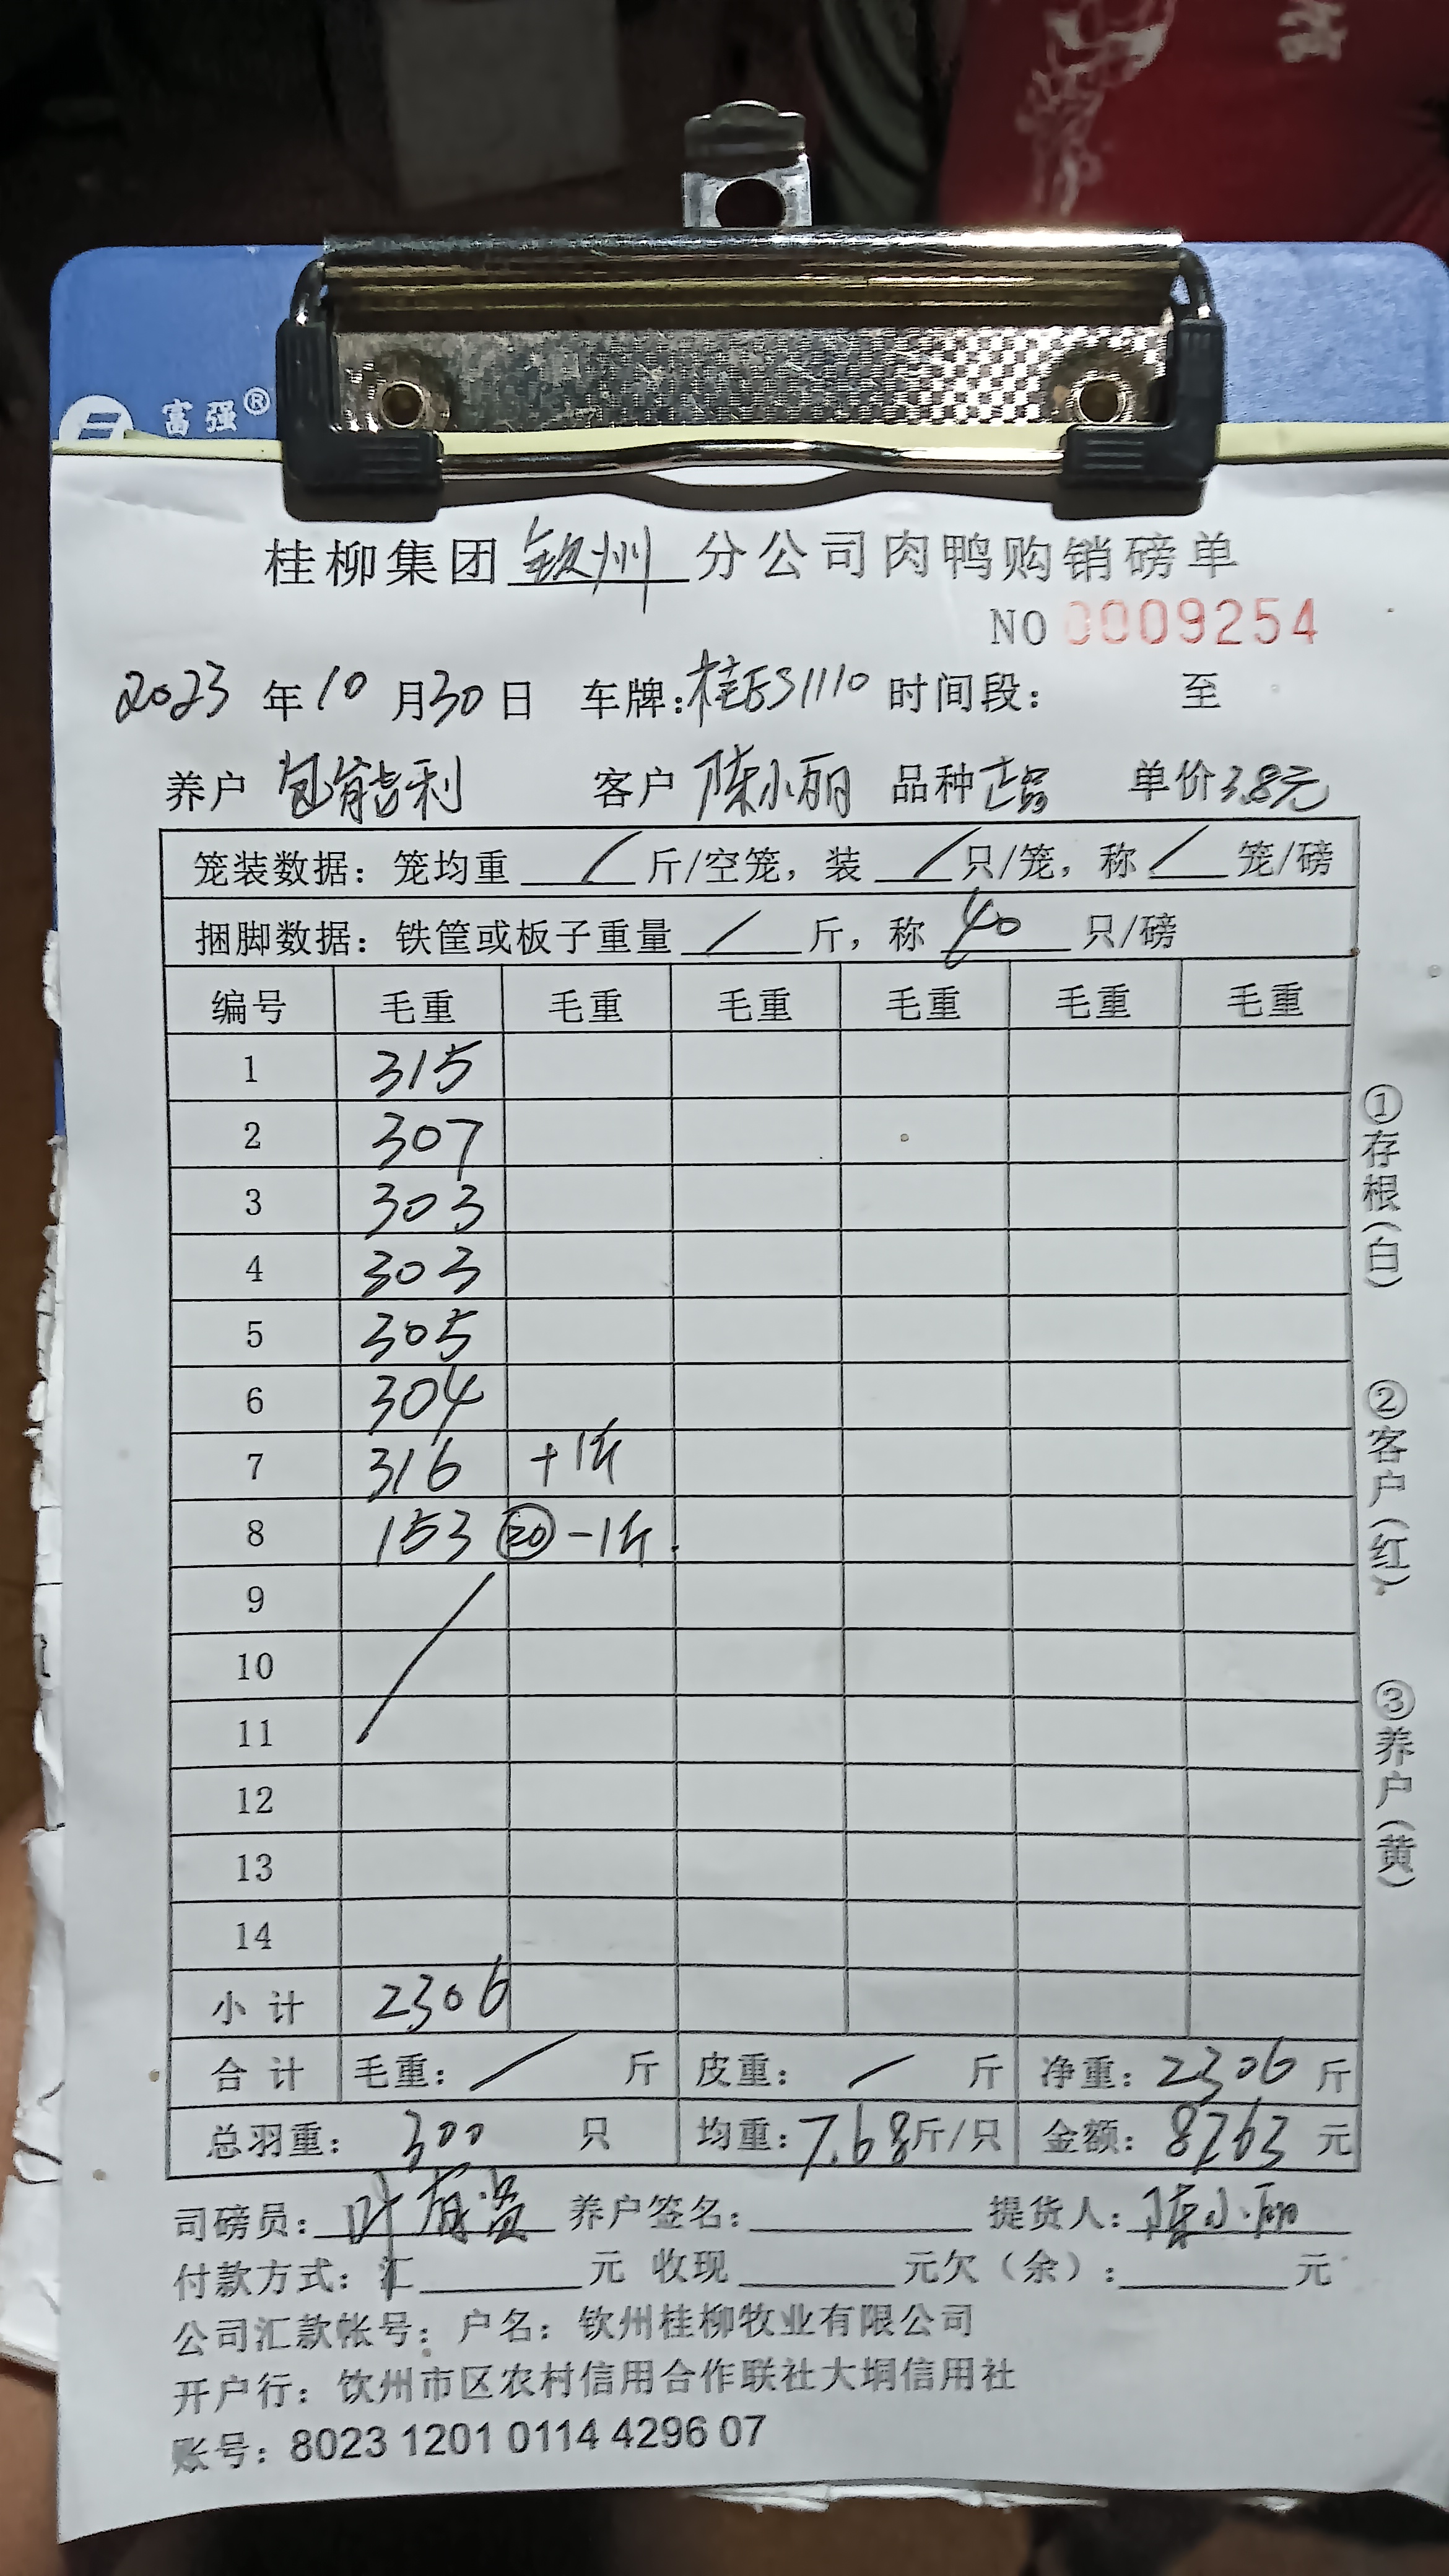 富强®
桂柳集团 钦州 分公司肉鸭购销磅单
NO 0009254
2023 年 10 月 30 日 车牌: 桂ES1110 时间段: 至
养户 包能利 客户 陈小丽 品种 正品 单价 3.8元
笼装数据: 笼均重 / 斤/空笼, 装 / 只/笼, 称 / 笼/磅
捆脚数据: 铁筐或板子重量 / 斤, 称 40 只/磅
编号 毛重 毛重 毛重 毛重 毛重 毛重
1 315
2 307
3 303
4 303
5 305
6 304
7 316 +1斤
8 153 20 -1斤.
9
10
11
12
13
14
小 计 2306
合 计 毛重: / 斤 皮重: / 斤 净重: 2306 斤
总羽重: 300 只 均重: 7.68 斤/只 金额: 8763 元
司磅员: 叶有 养户签名: 提货人: 陈小丽
付款方式: 汇 元 收现 元欠(余): 元
公司汇款帐号: 户名: 钦州桂柳牧业有限公司
开户行: 钦州市区农村信用合作联社大垌信用社
账号: 8023 1201 0114 4296 07
①存根(白)
②客户(红)
③养户(黄)